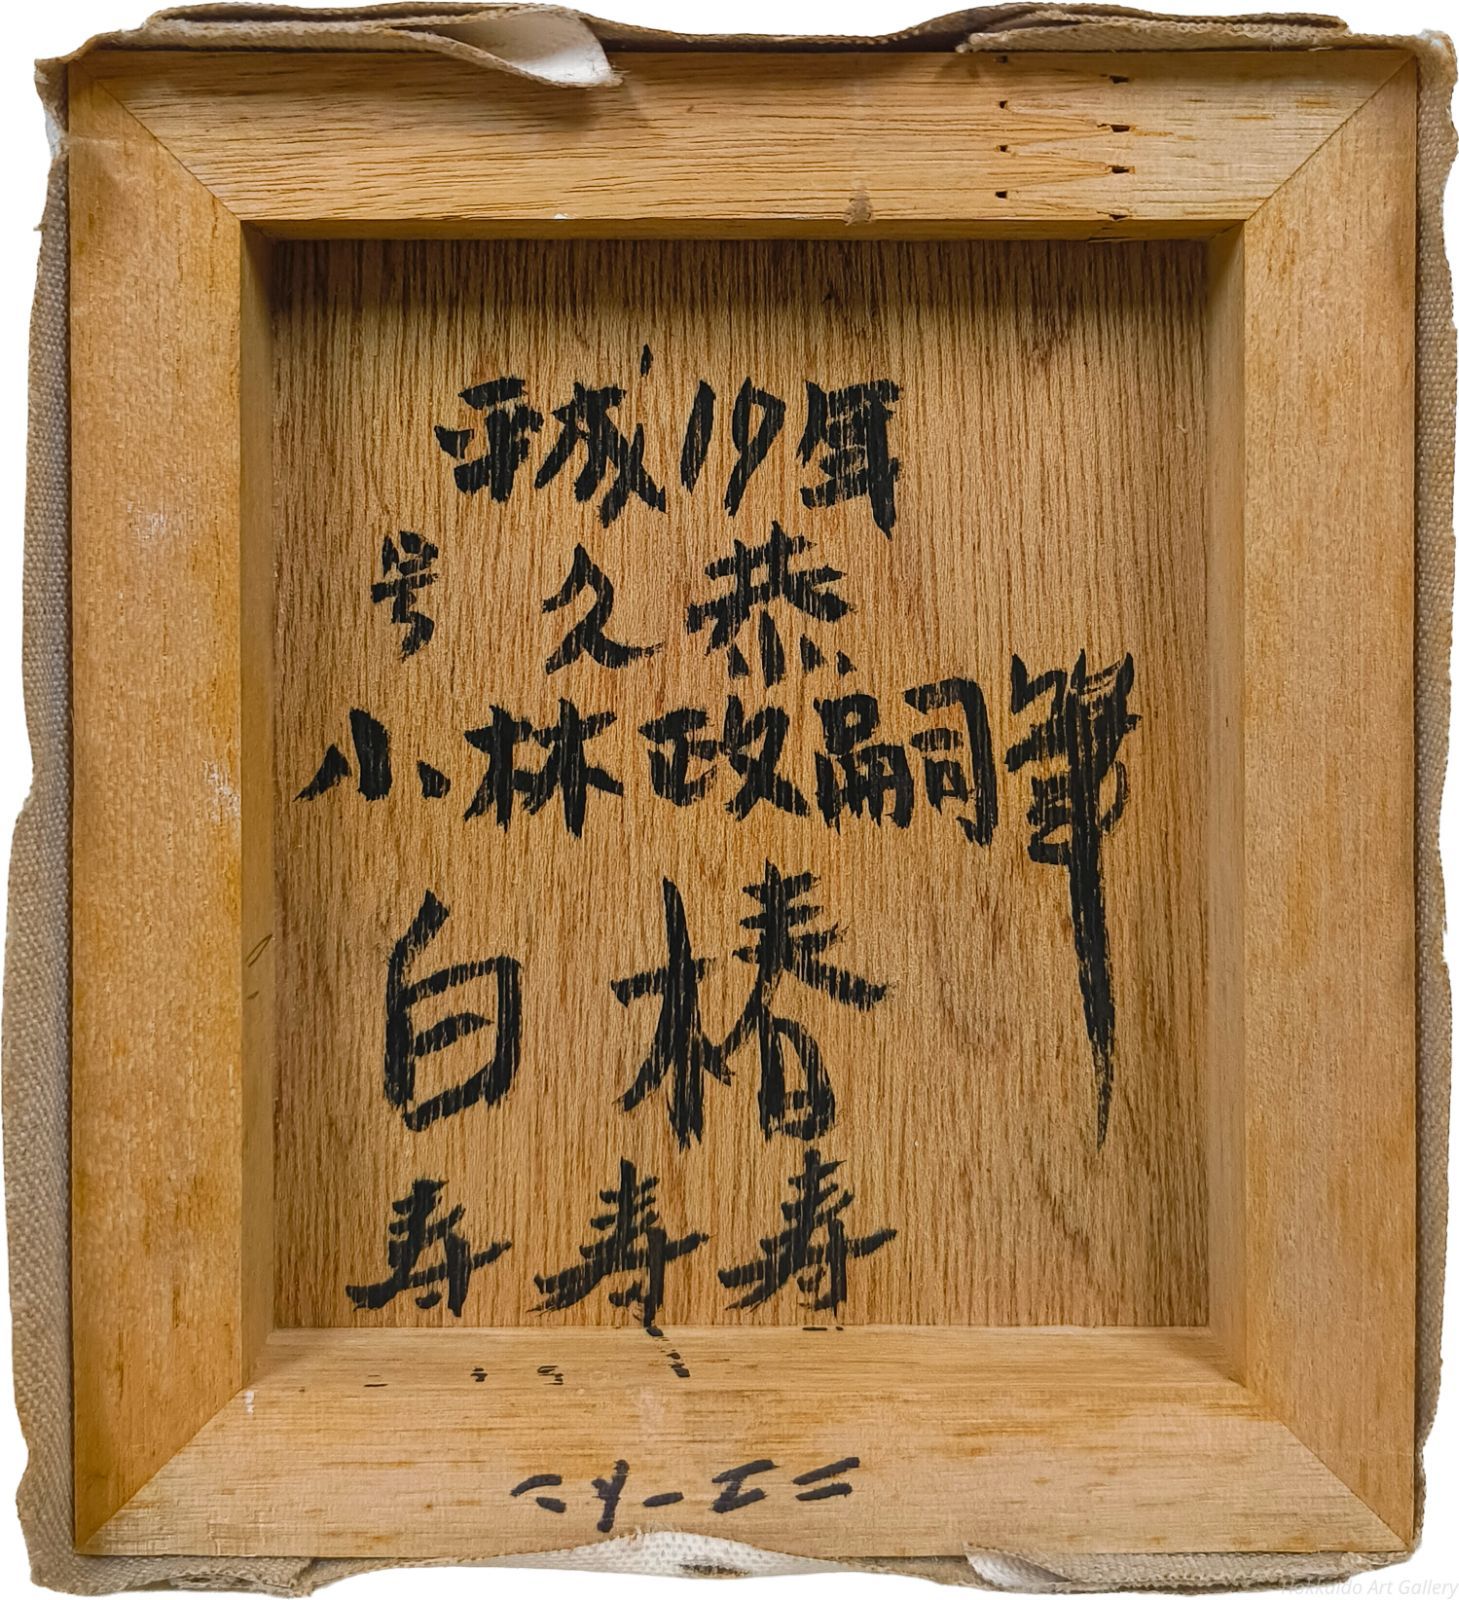 平成19年
号 久恭
小林政嗣筆
白椿
寿寿寿
Hokkaido Art Gallery